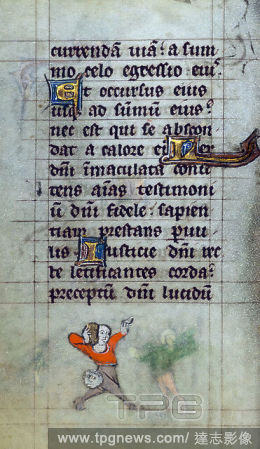 currendā uiā: a sum
mo celo egressio eiꝰ.
Et occursus eius
usq; ad sūmū eius:
nec est qui se abscon
dat a calore ei Lex
dn̄i īmaculata conuer
tens aīas testimoni
ū dn̄i fidele: sapien
tiam prestans paruu
lis Iusticie dn̄i rec
te letificantes corda:
preceptū dn̄i lucidū
TPG
www.tpgnews.com/ 達志影像